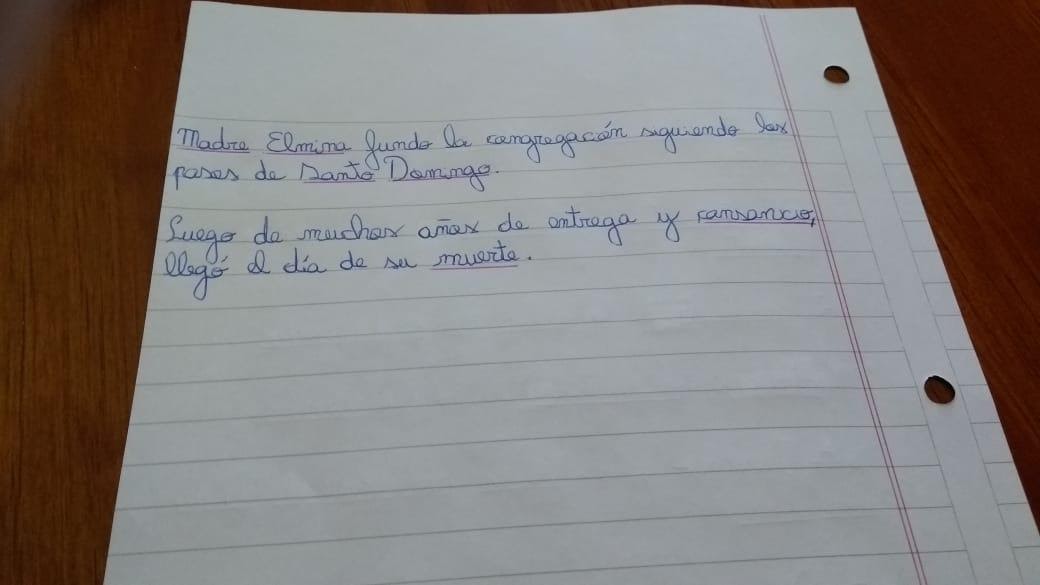 Madre Elmina fundo la congregación siguiendo los
pasos de Santo Domingo.
Luego de muchos años de entrega y cansancio,
llegó el día de su muerte.